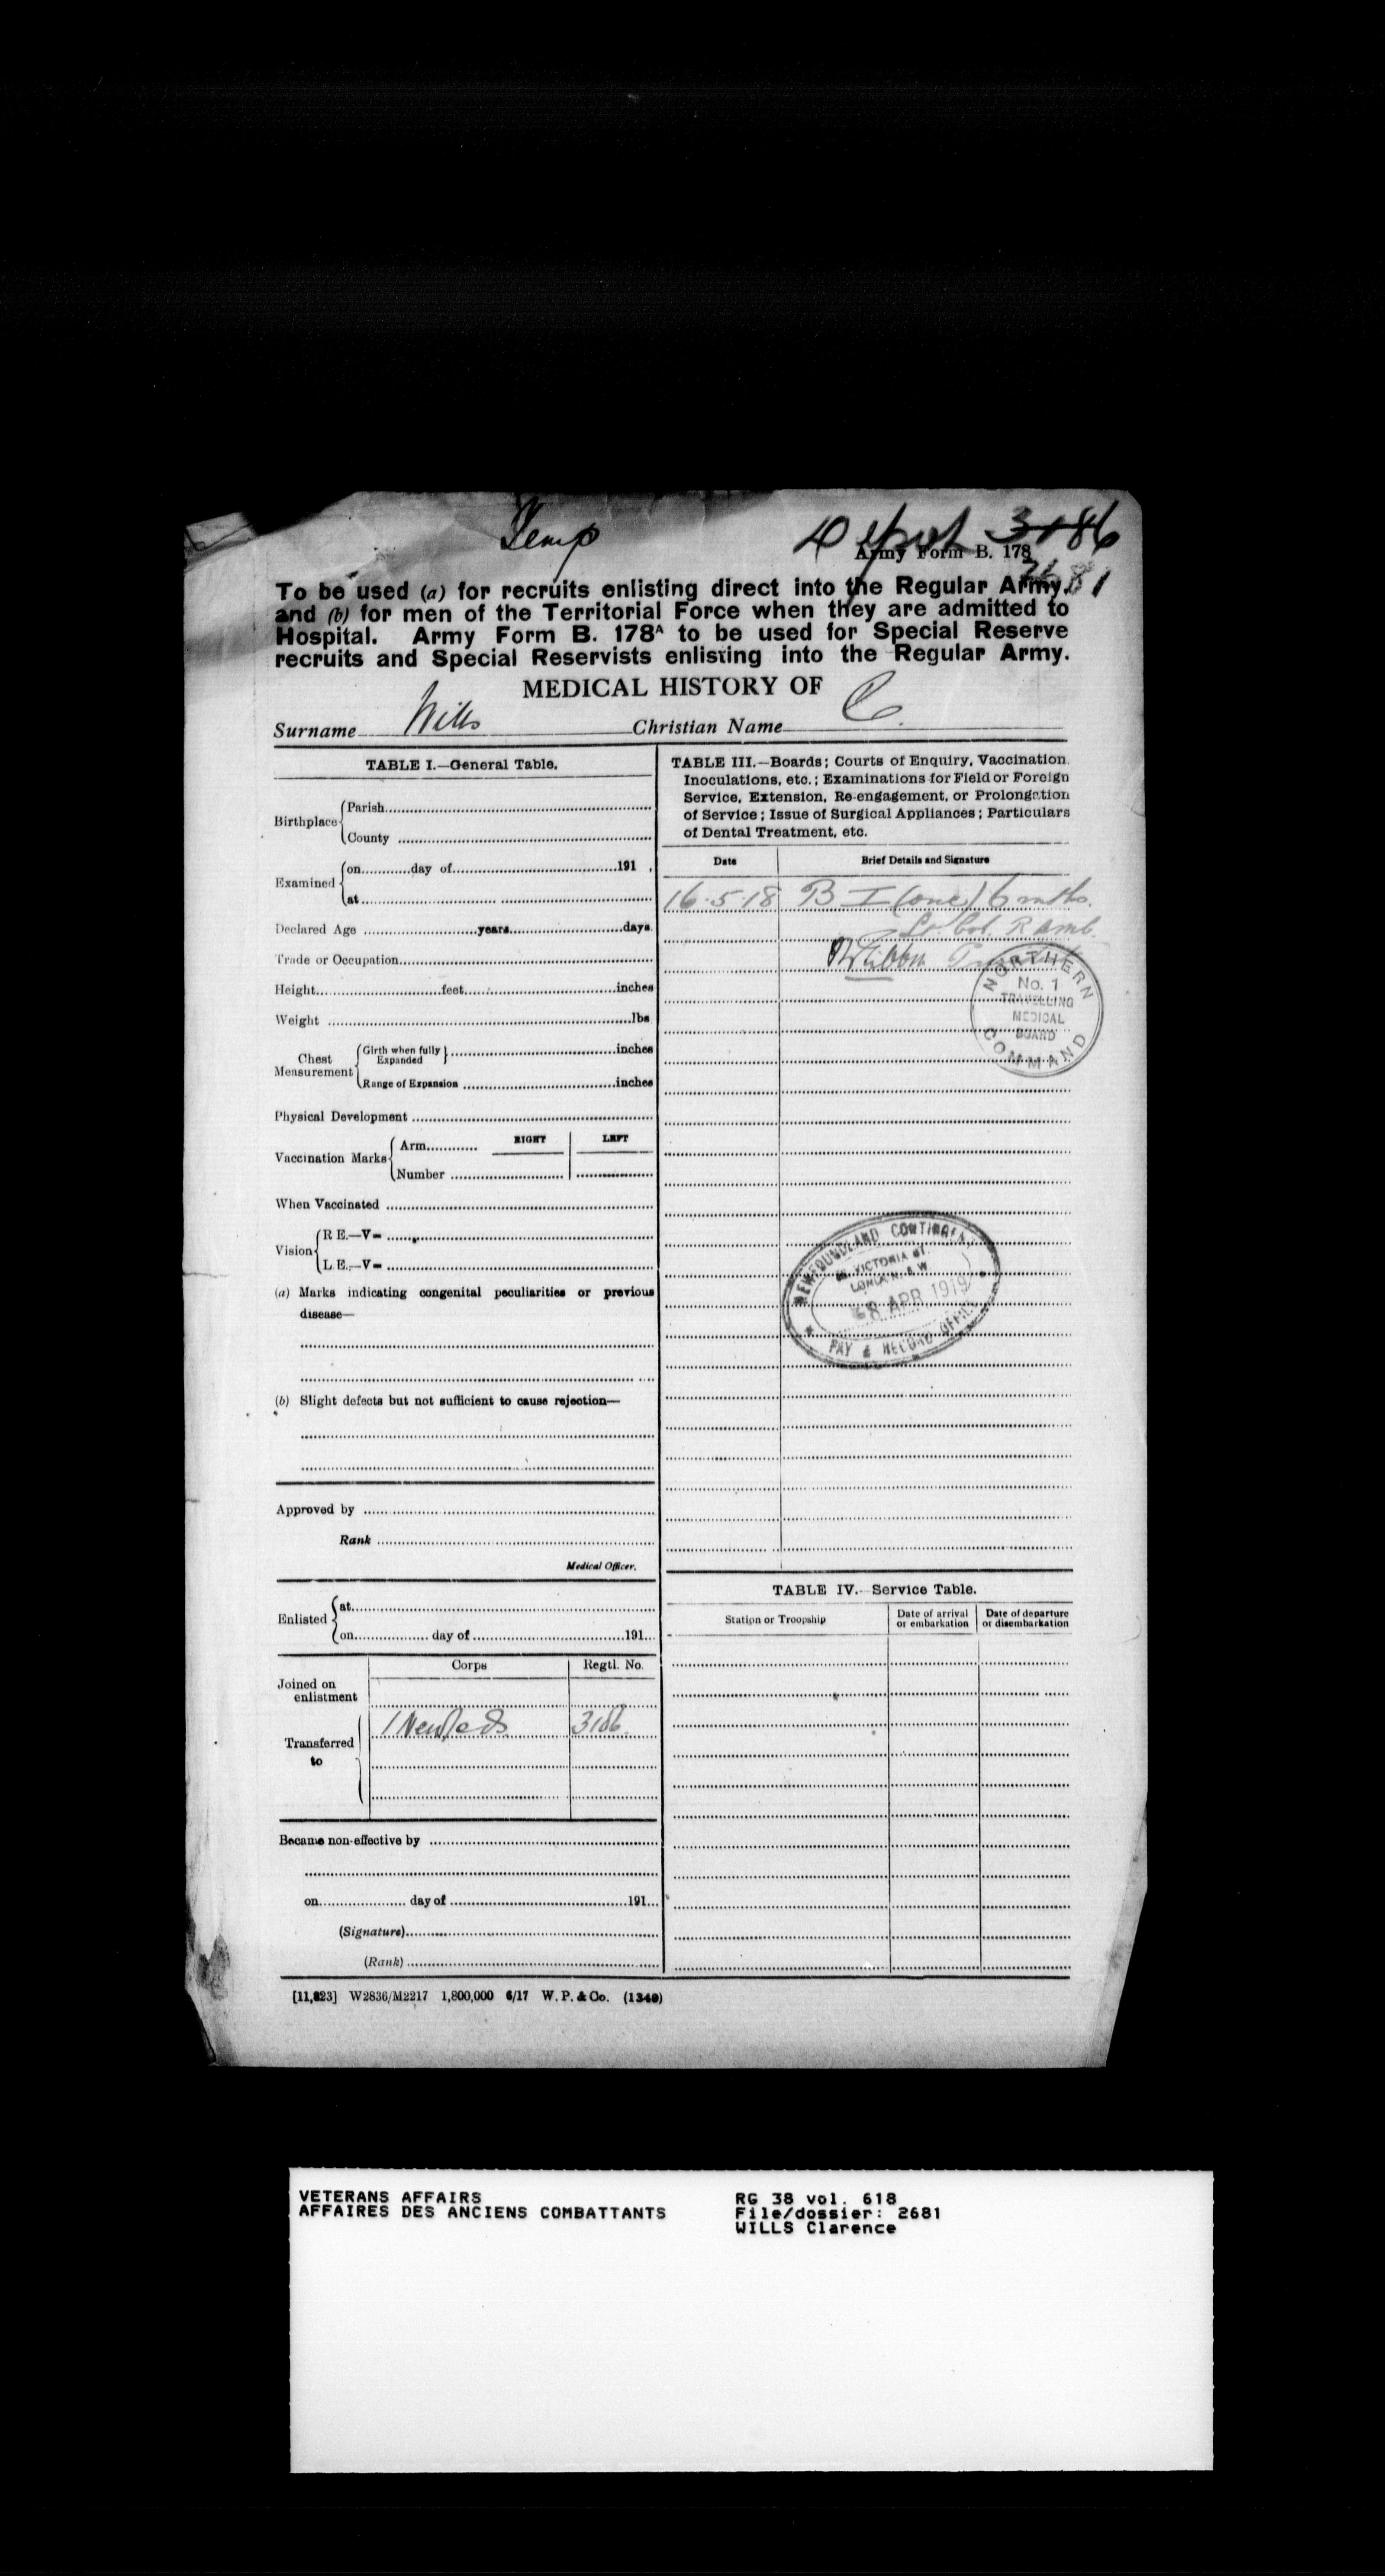 Temp
Depot 3186
Army Form B. 178
2681
To be used (a) for recruits enlisting direct into the Regular Army,
and (b) for men of the Territorial Force when they are admitted to
Hospital. Army Form B. 178A to be used for Special Reserve
recruits and Special Reservists enlisting into the Regular Army.
MEDICAL HISTORY OF
Surname Wills Christian Name C.
TABLE I.—General Table.
Birthplace
Parish
County
Examined
on day of 191 ,
at
Declared Age years days.
Trade or Occupation
Height feet inches
Weight lbs
Chest Measurement
Girth when fully Expanded inches
Range of Expansion inches
Physical Development
RIGHT LEFT
Vaccination Marks
Arm
Number
When Vaccinated
Vision
R E.—V=
L E.—V=
(a) Marks indicating congenital peculiarities or previous
disease—
(b) Slight defects but not sufficient to cause rejection—
Approved by
Rank
Medical Officer.
Enlisted
at
on day of 191
Corps Regtl. No.
Joined on
enlistment
1 Newflds 3186
Transferred
to
Became non-effective by
on day of 191
(Signature)
(Rank)
TABLE III.—Boards; Courts of Enquiry, Vaccination
Inoculations, etc.; Examinations for Field or Foreign
Service, Extension, Re-engagement, or Prolongation
of Service; Issue of Surgical Appliances; Particulars
of Dental Treatment, etc.
Date Brief Details and Signature
16.5.18 B I (one) 6 mths.
Lt. Col. Ramc.
NORTHERN
No. 1
TRAVELLING
MEDICAL
BOARD
COMMAND
NEWFOUNDLAND CONTINGENT
VICTORIA ST.
LONDON. S.W.
8 APR 1919
PAY & RECORD OFFICE
TABLE IV.—Service Table.
Station or Troopship
Date of arrival
or embarkation
Date of departure
or disembarkation
[11,823] W2836/M2217 1,800,000 6/17 W. P. & Co. (1340)
VETERANS AFFAIRS
AFFAIRES DES ANCIENS COMBATTANTS
RG 38 vol. 618
File/dossier: 2681
WILLS Clarence